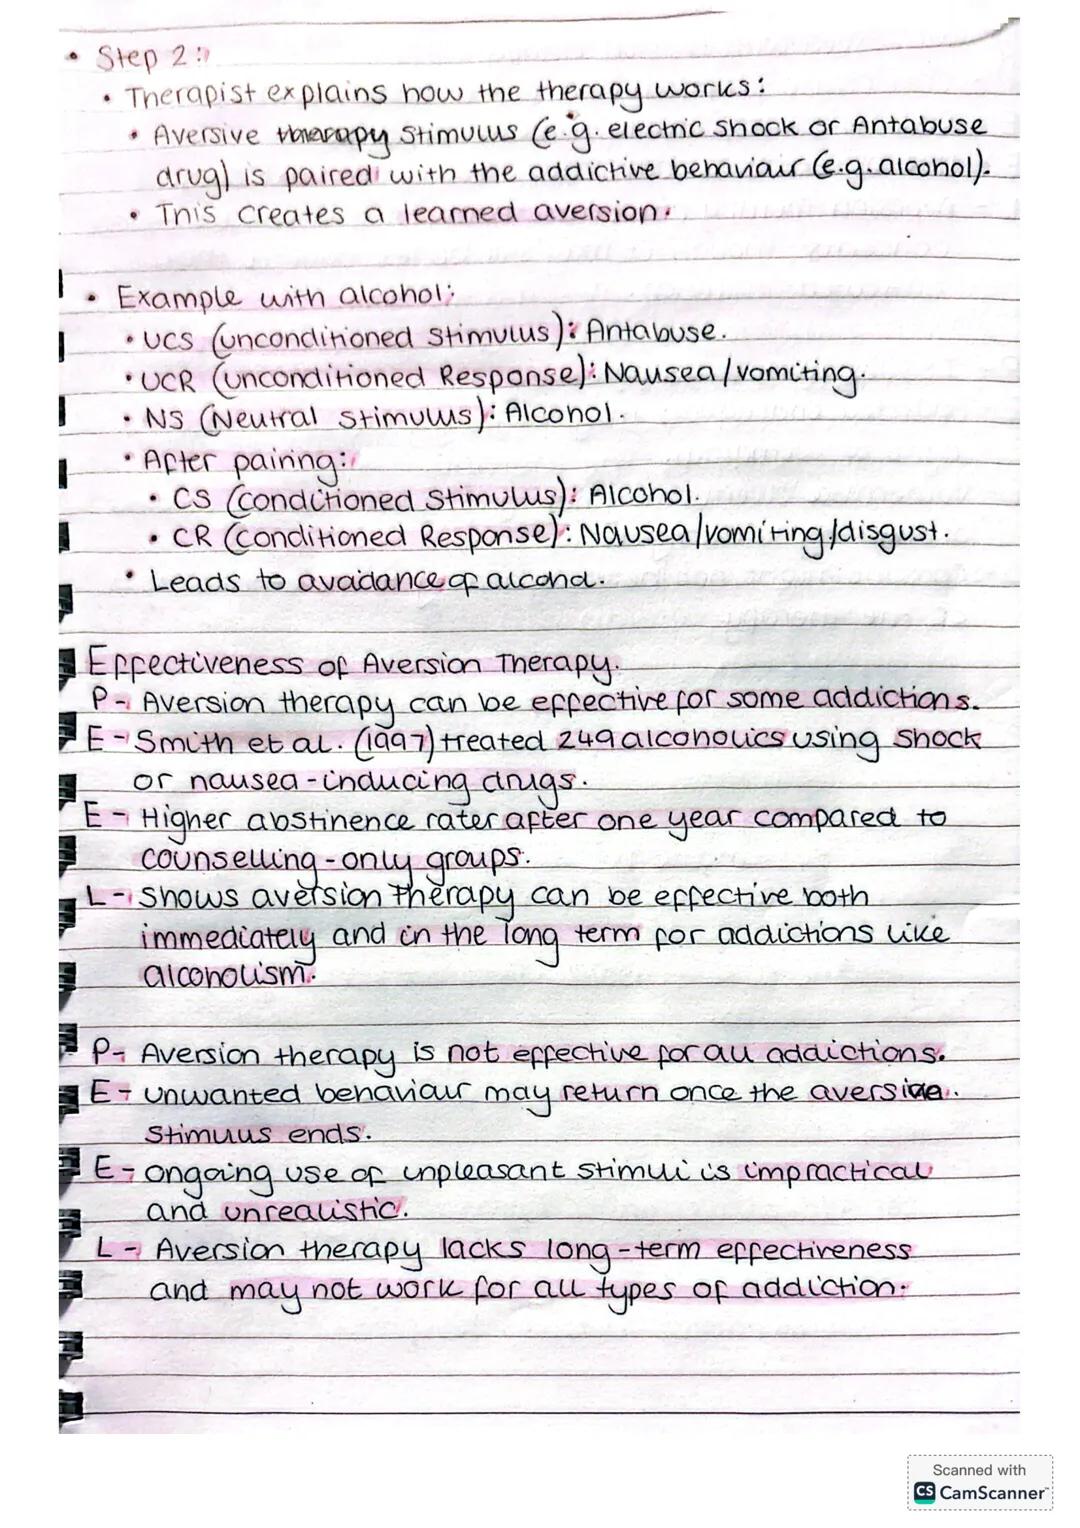 • Step 2:
• Therapist explains how the therapy works:
• Aversive therapy Stimulus (e.g. electric shock or Antabuse
drug) is paired with the addictive behaviour (e.g. alcohol).
• This creates a learned aversion.
• Example with alcohol:
• UCS (unconditioned Stimulus): Antabuse.
• UCR (unconditioned Response): Nausea/vomiting.
• NS (Neutral Stimulus): Alcohol.
• After pairing:
• CS (conditioned Stimulus): Alcohol.
• CR (conditioned Response): Nausea/vomiting/disgust.
• Leads to avoidance of alcohol.
Effectiveness of Aversion Therapy.
P- Aversion therapy can be effective for some addictions.
E- Smith et al. (1997) treated 249 alcoholics using shock
or nausea-inducing drugs.
E- Higher abstinence rates after one year compared to
counselling-only groups.
L- Shows aversion therapy can be effective both
immediately and in the long term for addictions like
alcoholism.
P- Aversion therapy is not effective for all addictions.
E- unwanted behaviour may return once the aversive
Stimulus ends.
E- ongoing use of unpleasant stimuli is impractical
and unrealistic.
L- Aversion therapy lacks long-term effectiveness
and may not work for all types of addiction.
Scanned with
CS CamScanner